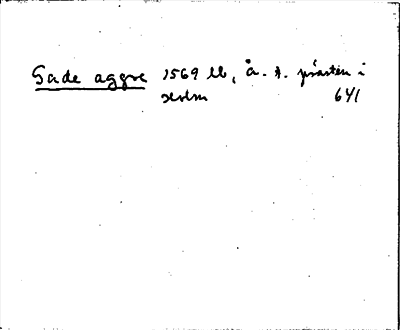 Gade aggre 1569 ll, Å. s. prästen i
Holm 641